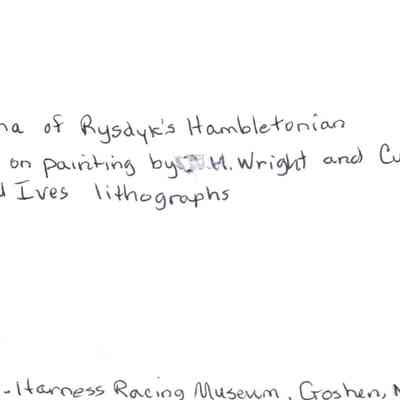 na of Rysdyk's Hambletonian
on painting by J. H. Wright and Cu
d Ives lithographs
- Harness Racing Museum, Goshen, N